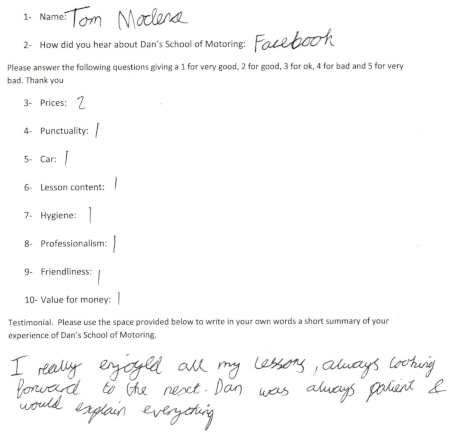 1- Name: Tom Modena
2- How did you hear about Dan's School of Motoring: Facebook
Please answer the following questions giving a 1 for very good, 2 for good, 3 for ok, 4 for bad and 5 for very
bad. Thank you
3- Prices: 2
4- Punctuality: 1
5- Car: 1
6- Lesson content: 1
7- Hygiene: 1
8- Professionalism: 1
9- Friendliness: 1
10- Value for money: 1
Testimonial. Please use the space provided below to write in your own words a short summary of your
experience of Dan's School of Motoring.
I really enjoyed all my lessons, always looking
forward to the next. Dan was always patient &
would explain everything